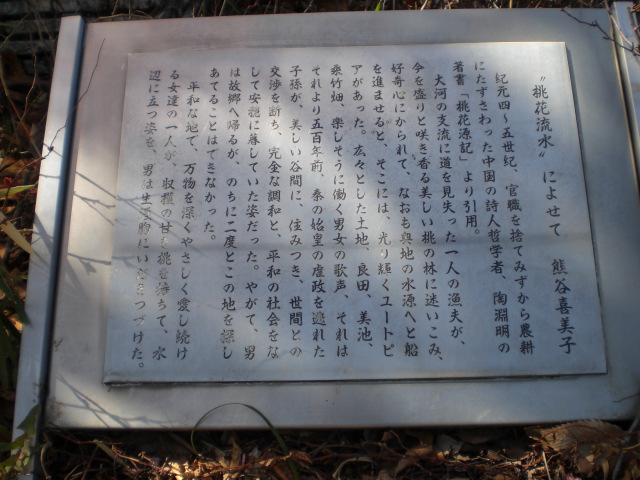 “桃花流水”によせて　熊谷喜美子
紀元四～五世紀、官職を捨てみずから農耕
にたずさわった中国の詩人哲学者、陶淵明の
著書「桃花源記」より引用。
大河の支流に道を見失った一人の漁夫が、
今を盛りと咲き香る美しい桃の林に迷いこみ、
好奇心にかられて、なおも奥地の水源へと船
を進ませると、そこには、光り輝くユートピ
アがあった。広々とした土地、良田、美池、
桑竹畑、楽しそうに働く男女の歌声、それは
それより五百年前、秦の始皇の虐政を逃れた
子孫が、美しい谷間に、住みつき、世間との
交渉を断ち、完全な調和と、平和の社会をな
して安穏に暮していた姿だった。やがて、男
は故郷へ帰るが、のちに二度とこの地を探し
あてることはできなかった。
平和な地で、万物を深くやさしく愛し続け
る女達の一人が、収穫の甘い桃を持ちて、水
辺に立つ姿を、男は生涯胸にいだきつづけた。